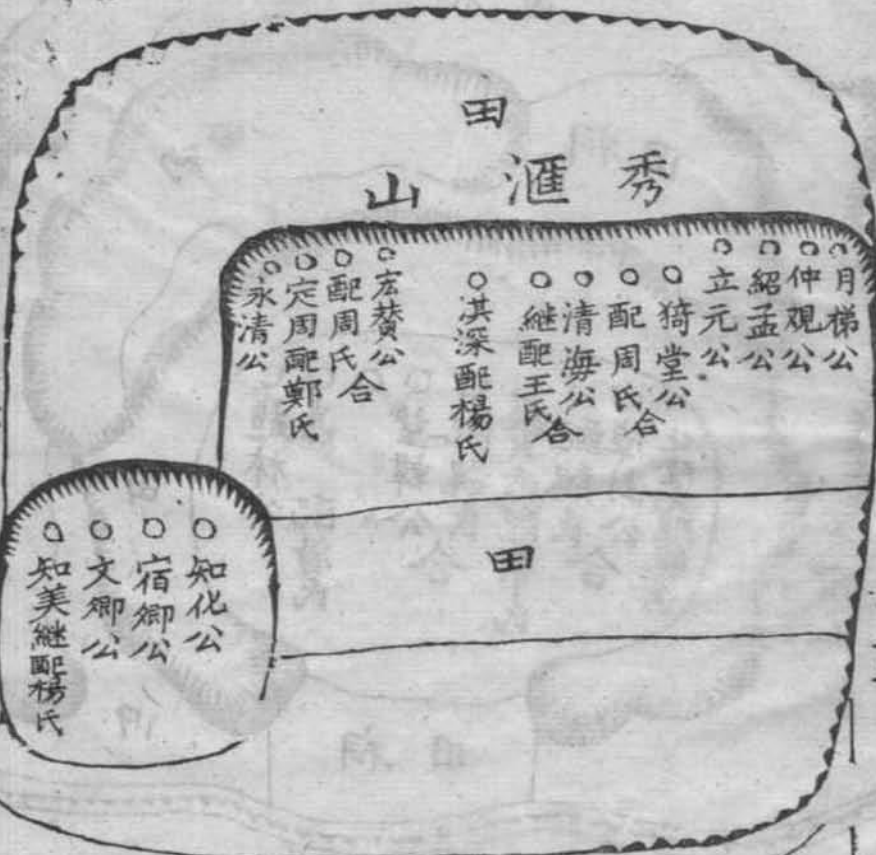 田
秀滙山
月梯公
仲观公
紹孟公
立元公
猗堂公
配周氏合
清海公
継配王氏合
淇深配楊氏
宏賛公
配周氏合
定周配鄭氏
永清公
田
知化公
宿卿公
文卿公
知美継配楊氏